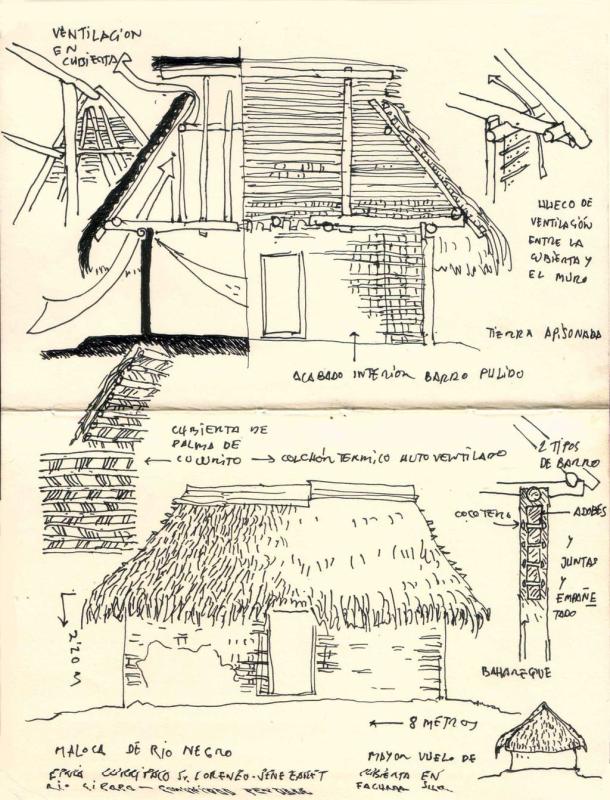 VENTILACION
EN
CUBIERTA
HUECO DE
VENTILACIÓN
ENTRE LA
CUBIERTA Y
EL MURO
TIERRA APISONADA
ACABADO INTERIOR BARRO PULIDO
CUBIERTA DE
PALMA DE
CUCURITO
COLCHÓN TERMICO AUTOVENTILADO
2 TIPOS
DE BARRO
ADOBES
Y
JUNTAS
Y
EMPAÑE
TADO
BAHAREQUE
2'20 M
8 METROS
MALOCA DE RIO NEGRO
LORENZO
MAYOR VUELO DE
CUBIERTA EN
FACHADA SUR